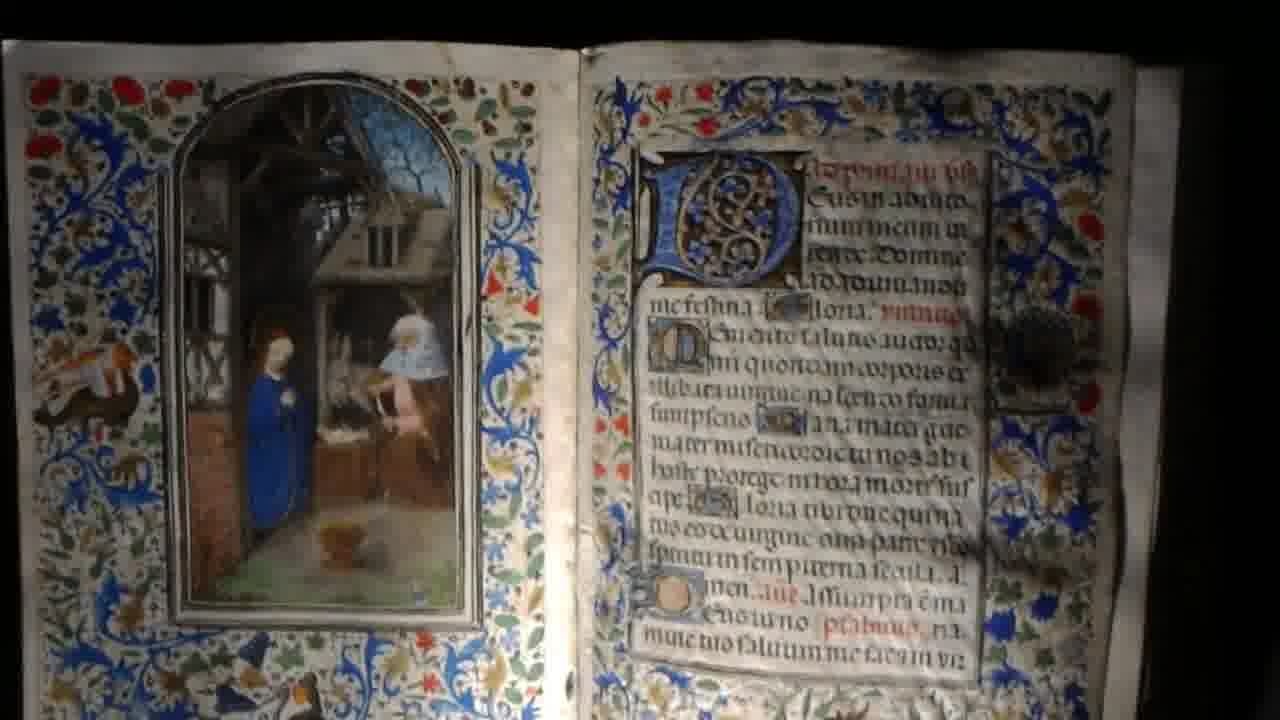 Eus in adiuto
rium meum in
tende. Domine
ad adiuuandum
me festina Gloria.
Memento salutis auctor
quondam corporis ex
illibata uirgine nascendo formā
sumpseris Maria mater gr̄e
mater misericordie tu nos ab
hoste protege in hora mortis sus
cipe Gloria tibi domine qui na
tus es de uirgine cum patre
spiritu in sempiterna secula. A
men. Assumpta
Deus in no psalmus. na
mine tuo saluum me fac et in vir